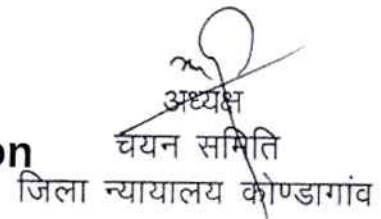 अध्यक्ष
on चयन समिति
जिला न्यायालय कोण्डागांव